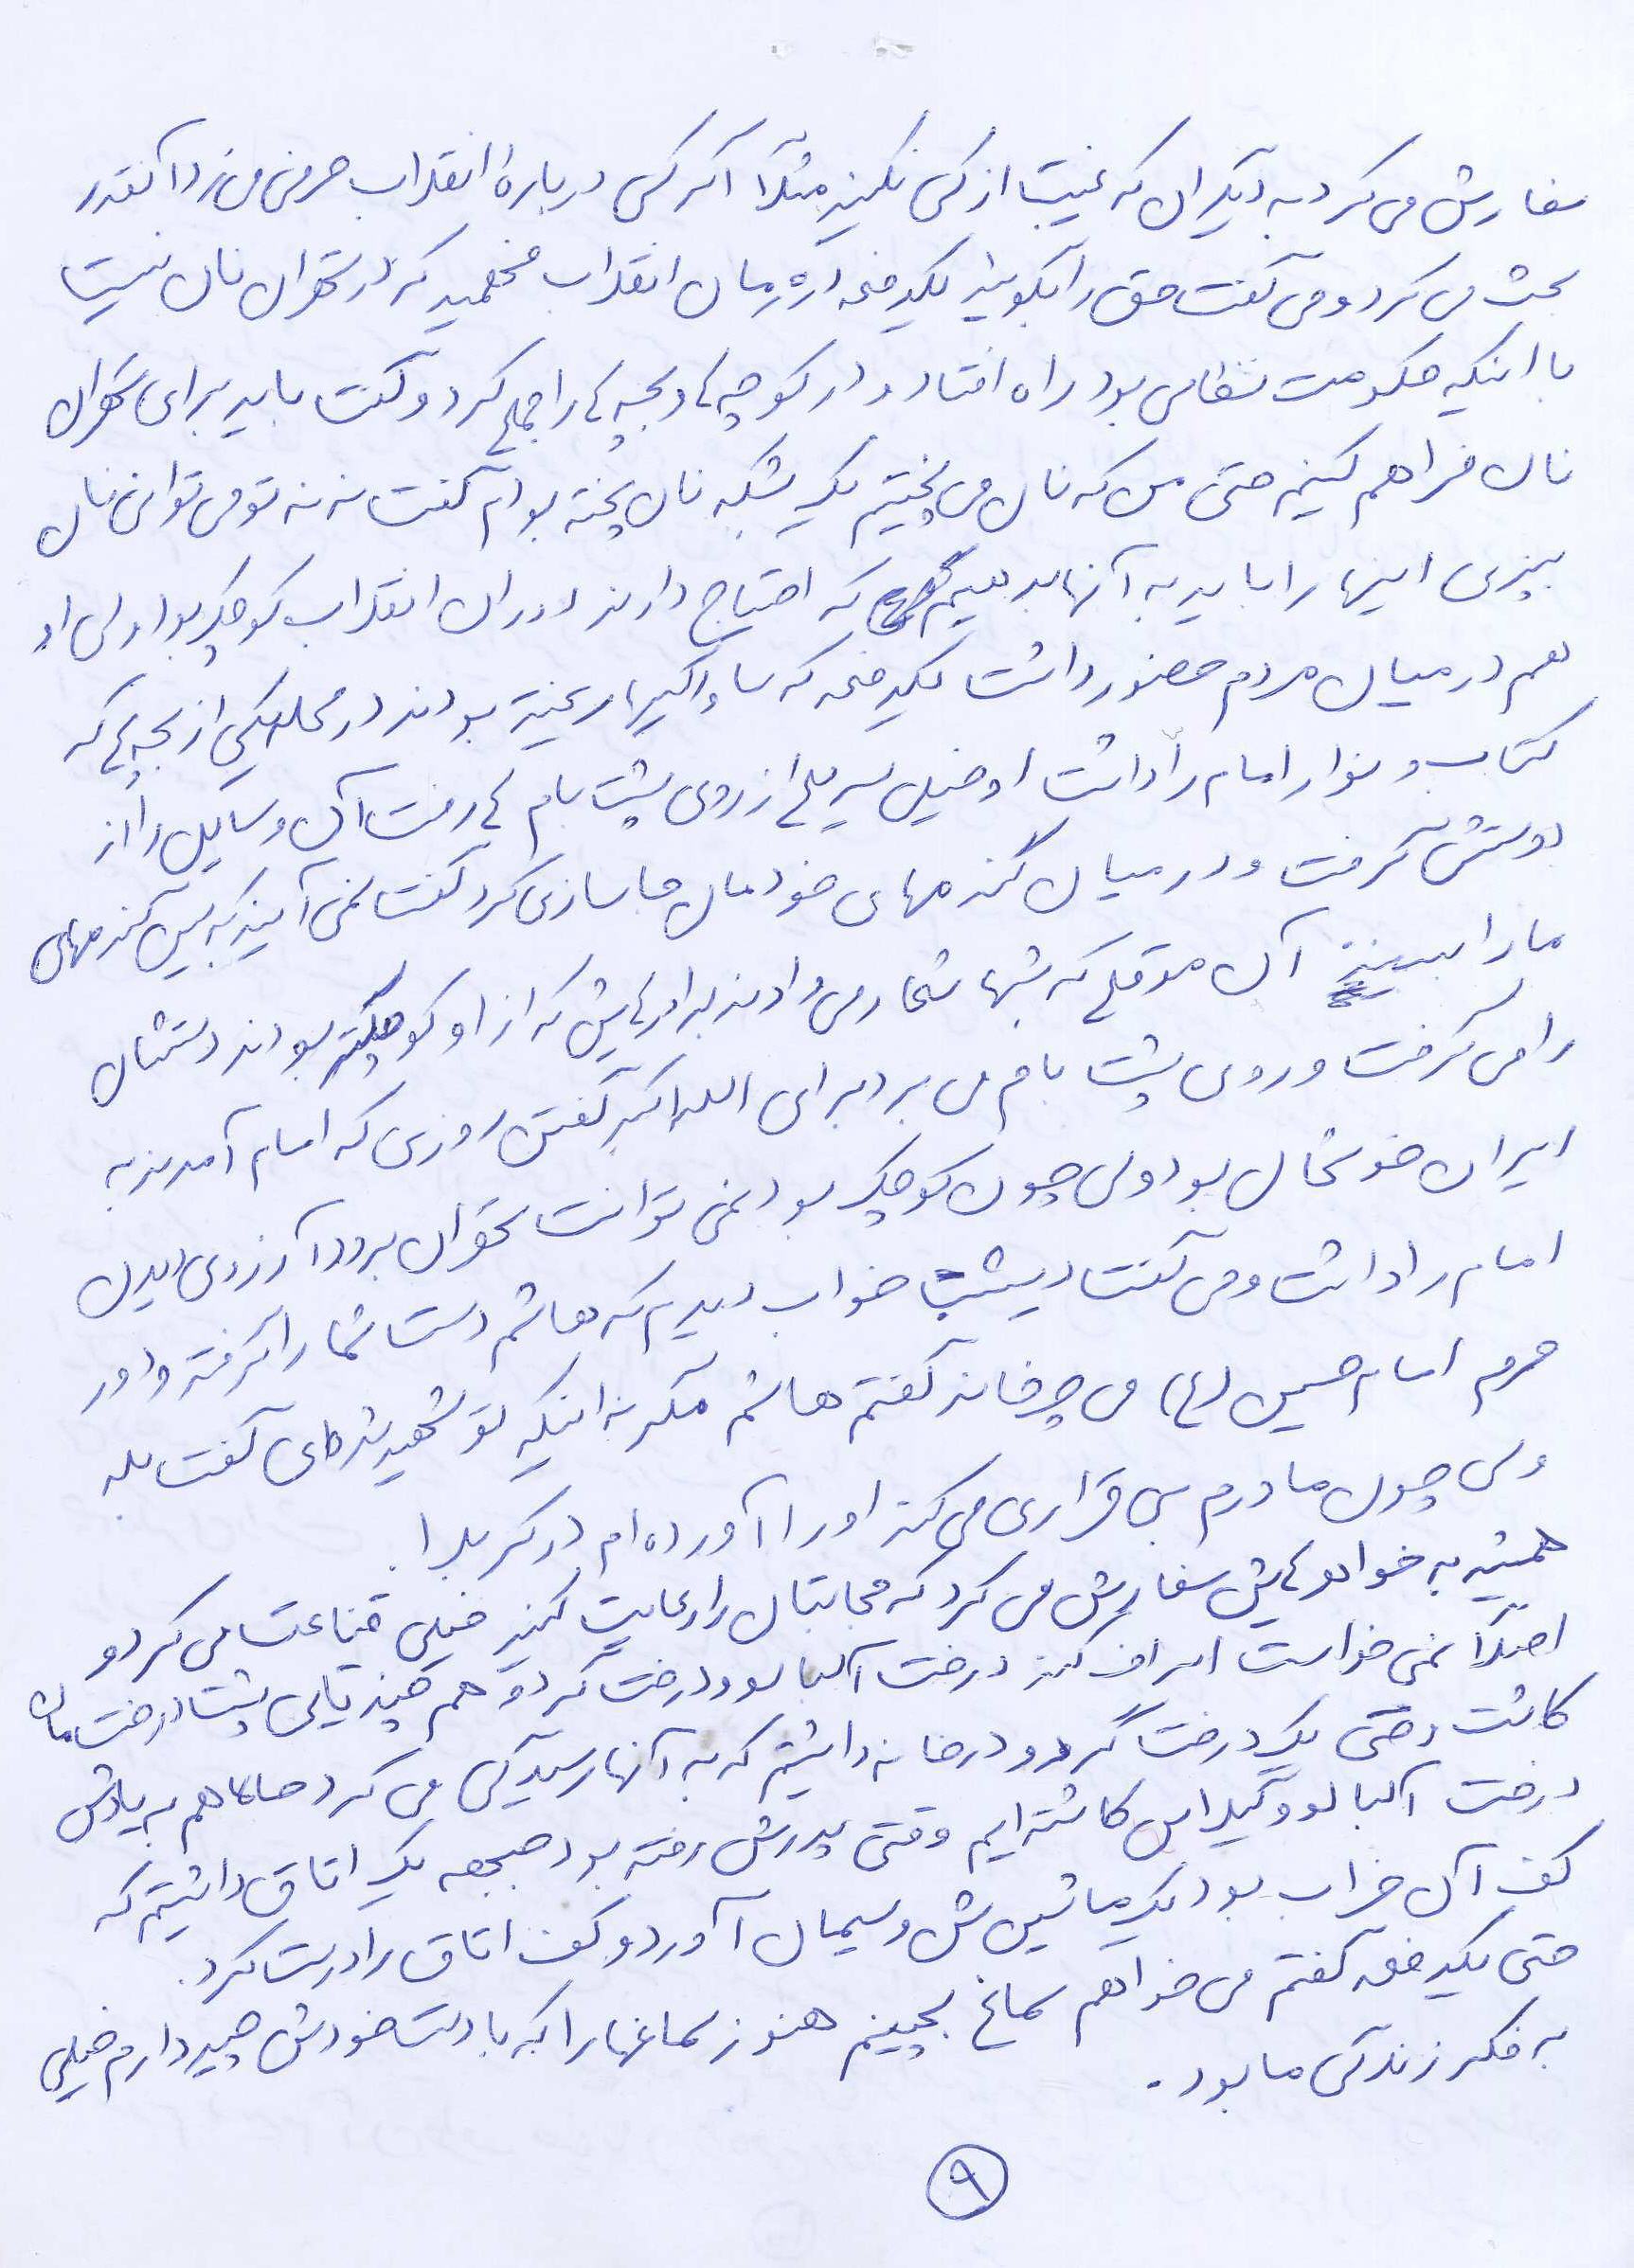 سفارش می کرد به دیگران که غیبت از کسی نکنید مثلاً اگر کسی درباره انقلاب حرفی می زد آنقدر
بحث می کرد و می گفت حق را بگوئید یکدفعه در زمان انقلاب فهمید که در تهران نان نیست
با اینکه حکومت نظامی بود راه افتاد و در کوچه ها و بچه ها را جمع کرد و گفت باید برای تهران
نان فراهم کنیم حتی من که نان می پختیم یک تشکه نان پخته بودم گفت نه نه تو می توانی نان
بپزی اینها را باید به آنها بدهیم که احتیاج دارند دوران انقلاب کوچک بود ولی او
هم در میان مردم حضور داشت یکدفعه که ساواکیها ریخته بودند در محله یکی از بچه ها که
کتاب و نوار امام را داشت او خیلی سریع از روی پشت بام ها رفت آن وسایل را از
دوستش گرفت و در میان گندمهای خودمان جاسازی کرد گفت نمی آیند که بین گندمهای
ما را ببینند آن موقع که شبها شعار می دادند برادرهایش که از او کوچکتر بودند دستشان
را می گرفت و روی پشت بام می برد برای الله اکبر گفتن روزی که امام آمدند به
ایران خوشحال بود ولی چون کوچک بود نمی توانست تهران برود آرزوی دیدن
امام را داشت و می گفت دیشب خواب دیدم که هاشم دست شما را گرفته و دور
حرم امام حسین (ع) می چرخاند گفتم هاشم مگر نه اینکه تو شهید شده ای گفت بله
ولی چون مادرم بی قراری می کند او را آورده ام در کربلا.
همیشه به خواهرهایش سفارش می کرد که حجابتان را رعایت کنید خیلی قناعت می کرد و
اصلاً نمی خواست اسراف کند درخت آلبالو و درخت گردو هم چند تایی پشت درختمان
کاشت حتی یک درخت گردو در خانه داشتیم که به آنها رسیدگی می کرد حالا هم به یادش
درخت آلبالو و گیلاس کاشته ایم وقتی پدرش رفته بود جبهه یک اتاق داشتیم که
کف آن خراب بود یک ماشین شن و سیمان آورد و کف اتاق را درست کرد.
حتی یکدفعه گفتم می خواهم سماغ بچینم هنوز سماغها را که با دست خودش چید دارم خیلی
به فکر زندگی ما بود.
۹